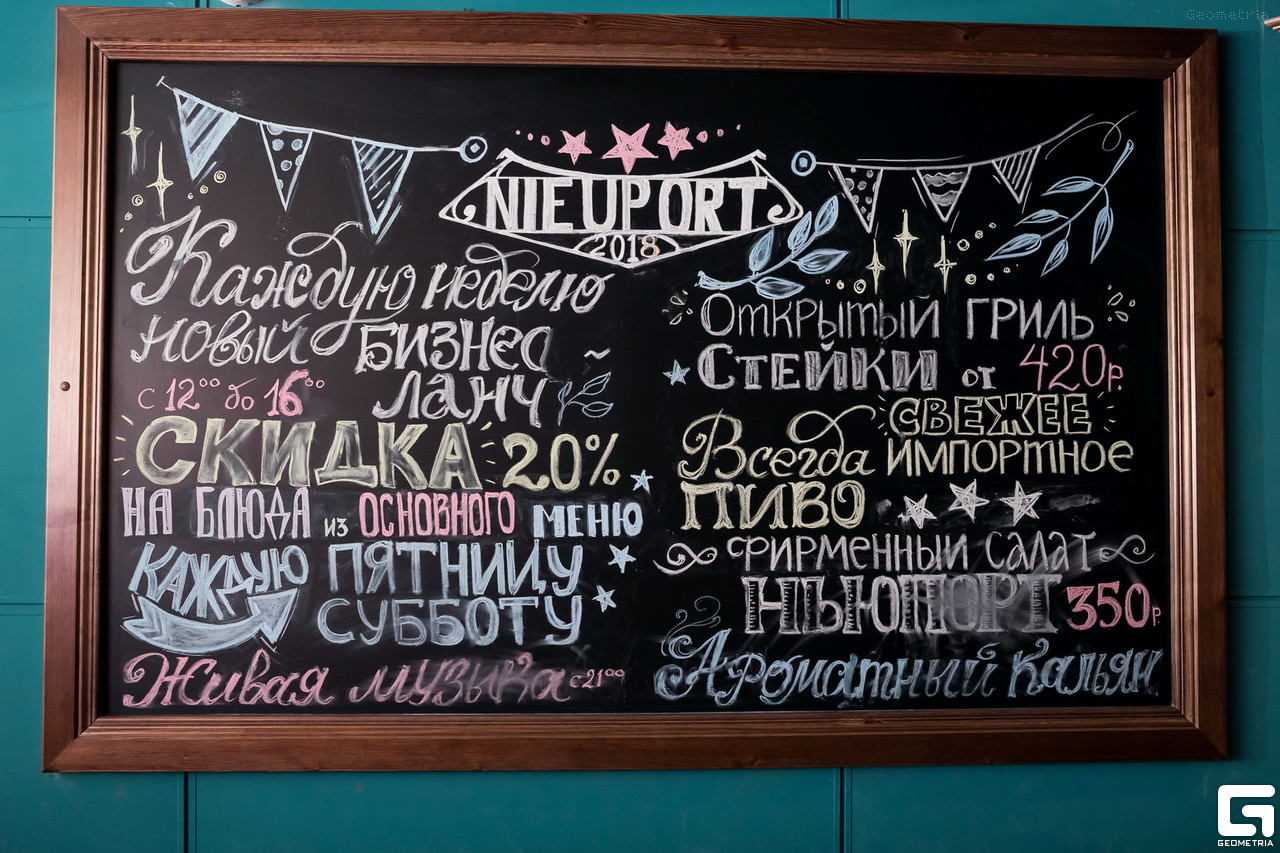 Geometria
NIEUPORT
2018
Каждую неделю
новый БИЗНЕС
ЛАНЧ
с 12⁰⁰ до 16⁰⁰
СКИДКА 20%
НА БЛЮДА из ОСНОВНОГО МЕНЮ
КАЖДУЮ ПЯТНИЦУ
СУББОТУ
Живая музыка с 21⁰⁰
Открытый ГРИЛЬ
СТЕЙКИ от 420р.
Всегда СВЕЖЕЕ
ИМПОРТНОЕ
ПИВО
ФИРМЕННЫЙ САЛАТ
НЬЮПОРТ 350р.
Ароматный Кальян
GEOMETRIA